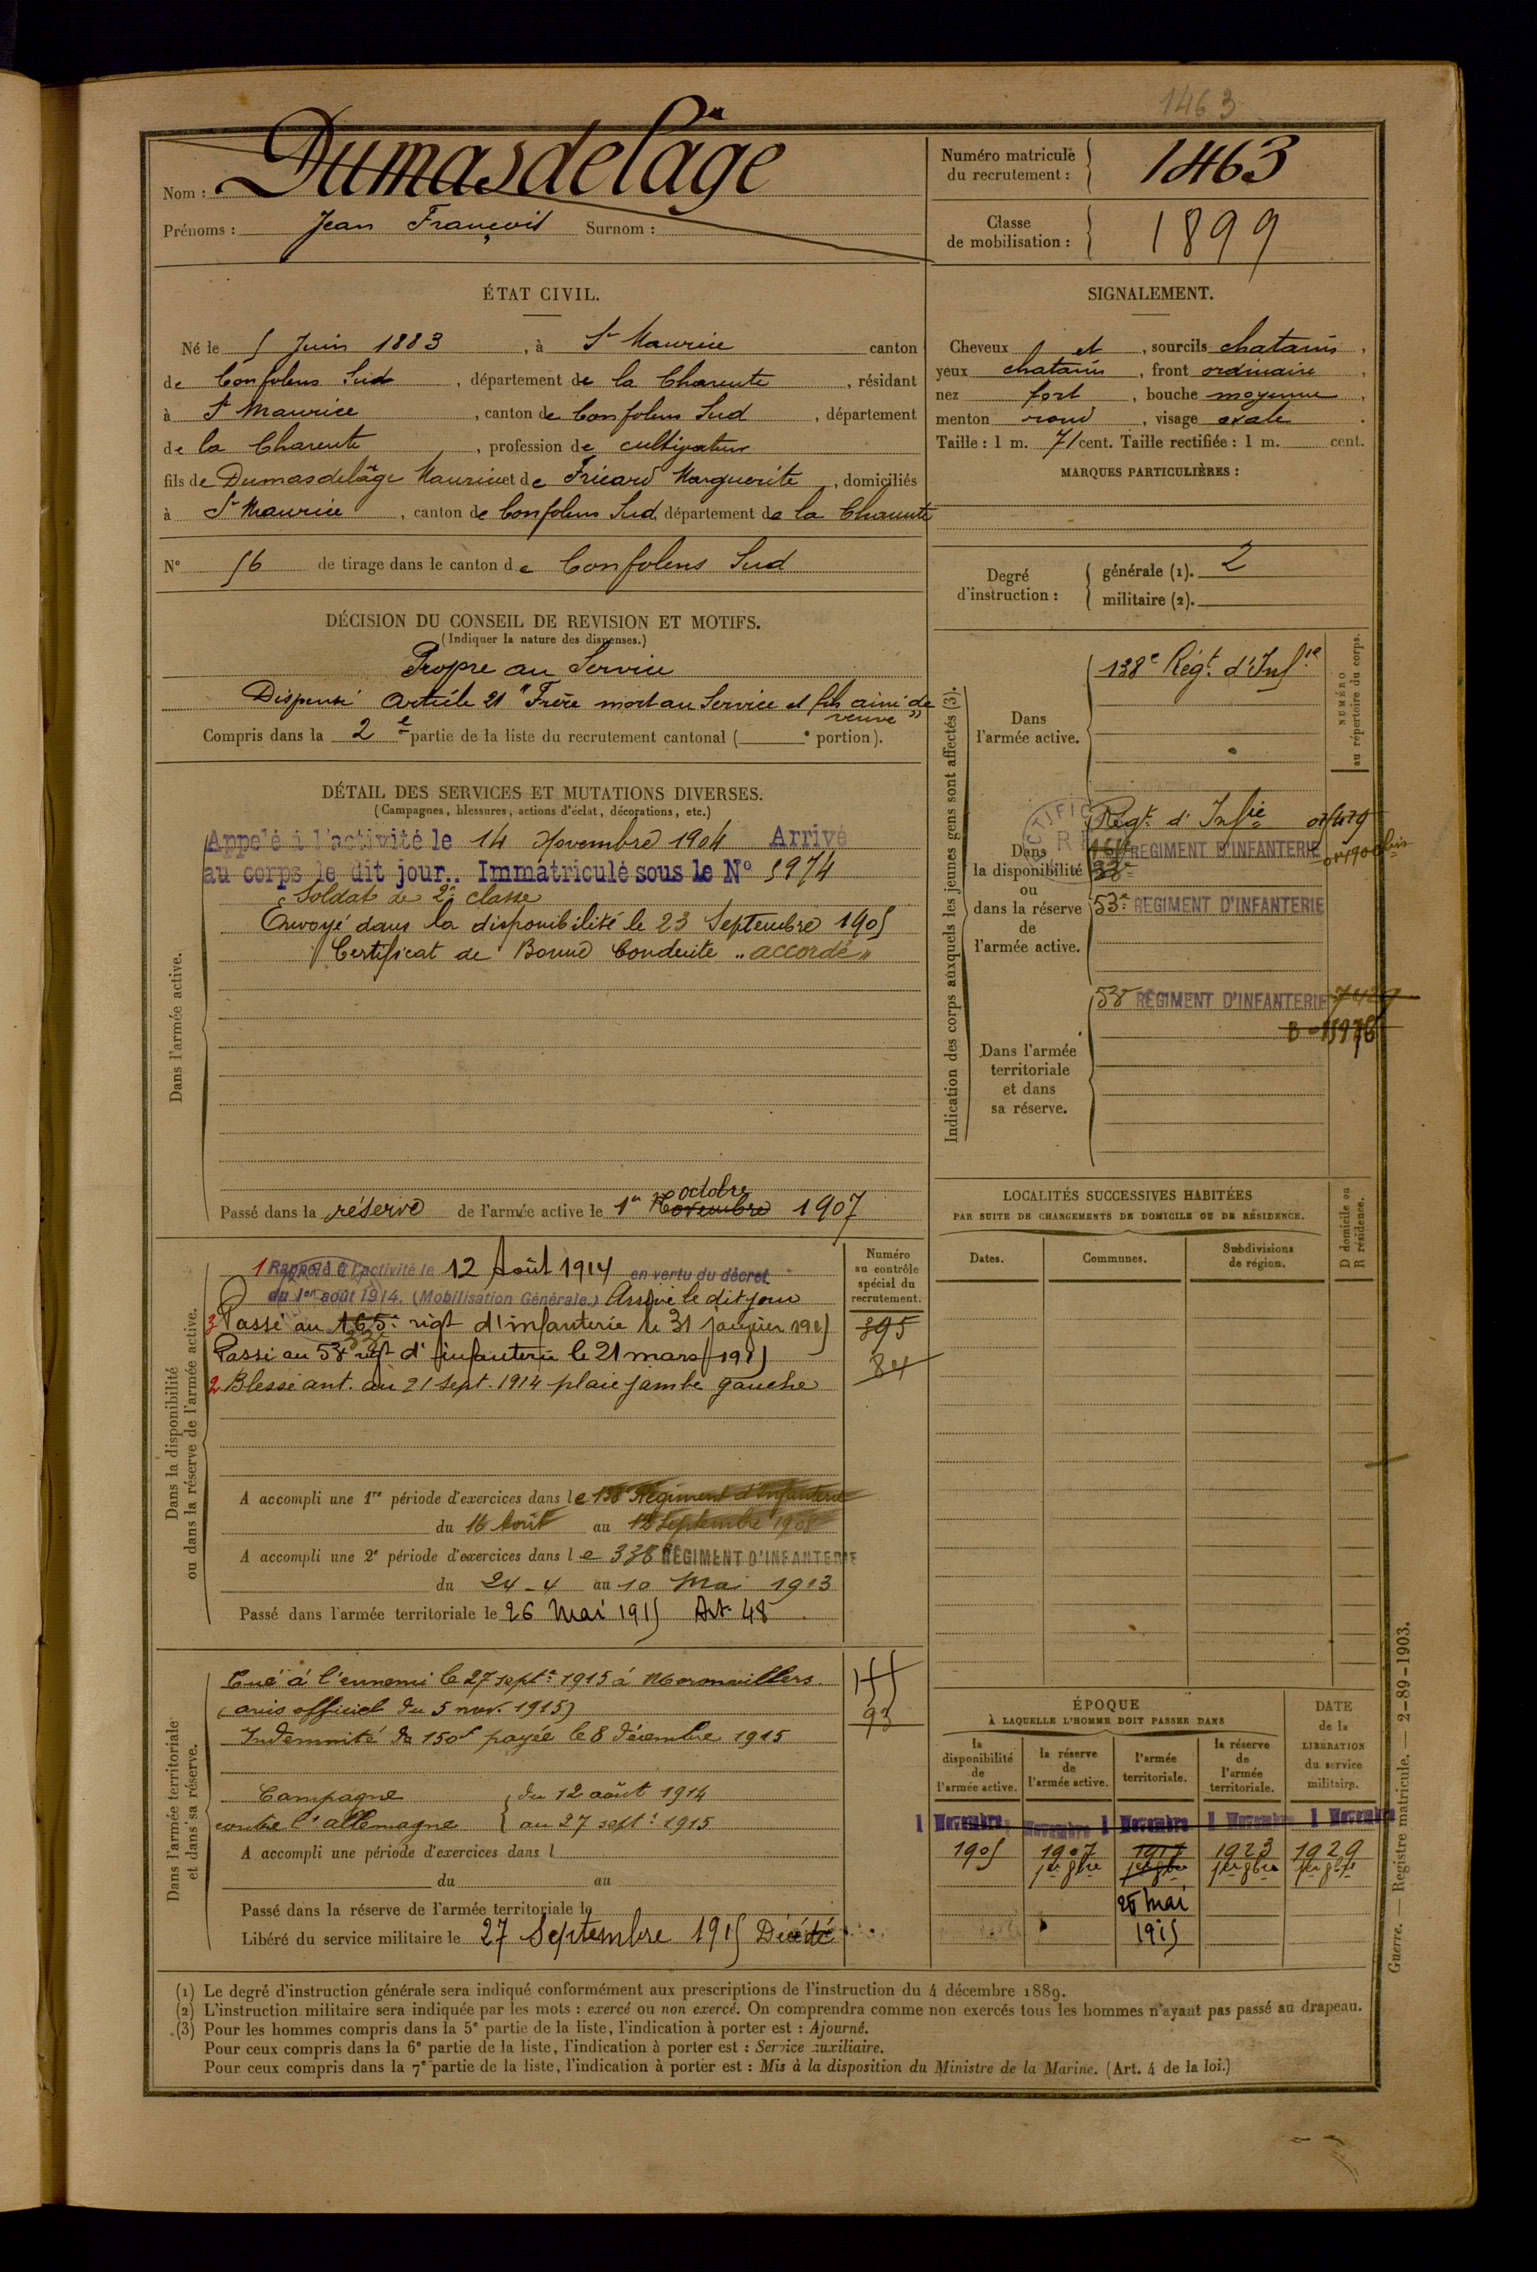 1463
Nom : Dumasdelâge
Prénoms : Jean François Surnom :
Numéro matricule du recrutement : 1463
Classe de mobilisation : 1899
ÉTAT CIVIL.
Né le 5 Juin 1883, à St Maurice canton
de Confolens Sud, département de la Charente, résidant
à St Maurice, canton de Confolens Sud, département
de la Charente, profession de cultivateur
fils de Dumasdelâge Maurice et de Fricard Marguerite, domiciliés
à St Maurice, canton de Confolens Sud, département de la Charente
N° 56 de tirage dans le canton de Confolens Sud
SIGNALEMENT.
Cheveux et, sourcils chatains,
yeux chatains, front ordinaire,
nez fort, bouche moyenne,
menton rond, visage ovale.
Taille : 1 m. 71 cent. Taille rectifiée : 1 m. cent.
MARQUES PARTICULIÈRES :
Degré d'instruction : générale (1). 2
militaire (2).
DÉCISION DU CONSEIL DE REVISION ET MOTIFS.
(Indiquer la nature des dispenses.)
Propre au Service
Dispensé article 21 "Frère mort au Service et fils ainé de
veuve"
Compris dans la 2e partie de la liste du recrutement cantonal ( e portion).
DÉTAIL DES SERVICES ET MUTATIONS DIVERSES.
(Campagnes, blessures, actions d'éclat, décorations, etc.)
Dans l'armée active.
Appelé à l'activité le 14 Novembre 1904 Arrivé
au corps le dit jour.. Immatriculé sous le N° 5974
Soldat de 2e classe
Envoyé dans la disponibilité le 23 Septembre 1905
Certificat de Bonne Conduite "accordé"
octobre
Passé dans la réserve de l'armée active le 1er Novembre 1907
Indication des corps auxquels les jeunes gens sont affectés (3).
NUMÉRO au répertoire du corps.
Dans l'armée active.
138e Régt d'Infie
Dans la disponibilité ou dans la réserve de l'armée active.
Régt d'Infie
REGIMENT D'INFANTERIE
53e REGIMENT D'INFANTERIE
Dans l'armée territoriale et dans sa réserve.
53e REGIMENT D'INFANTERIE
LOCALITÉS SUCCESSIVES HABITÉES
PAR SUITE DE CHANGEMENTS DE DOMICILE OU DE RÉSIDENCE.
Dates. Communes. Subdivisions de région. D domicile ou R résidence.
Dans la disponibilité ou dans la réserve de l'armée active.
Numéro au contrôle spécial du recrutement.
1 Rappelé à l'activité le 12 Août 1914 en vertu du décret
du 1er août 1914. (Mobilisation Générale.) Arrivé le dit jour
3 Passé au régt d'infanterie le 31 janvier 1915
395
Passé au 53e régt d'infanterie le 21 mars 1915
84
2 Blessé ant. au 21 sept. 1914 plaie jambe gauche
A accompli une 1re période d'exercices dans le 138e Régiment d'Infanterie
du 16 Août au 12 Septembre 1908
A accompli une 2e période d'exercices dans le 338 REGIMENT D'INFANTERIE
du 24-4 au 10 Mai 1913
Passé dans l'armée territoriale le 26 Mai 1915 Art. 48
Dans l'armée territoriale et dans sa réserve.
Tué à l'ennemi le 27 septe 1915 à Moronvillers.
(avis officiel du 5 nov. 1915)
93
Indemnité de 150f payée le 8 décembre 1915
Campagne du 12 août 1914
contre l'allemagne au 27 septe 1915
A accompli une période d'exercices dans l
du au
Passé dans la réserve de l'armée territoriale le
Libéré du service militaire le 27 Septembre 1915 Décédé
ÉPOQUE
À LAQUELLE L'HOMME DOIT PASSER DANS
la disponibilité de l'armée active.
la réserve de l'armée active.
l'armée territoriale.
la réserve de l'armée territoriale.
DATE de la LIBERATION du service militaire.
1 Novembre Novembre 1 Novembre 1 Novembre 1 Novembre
1905 1907 1917 1923 1929
1er 8bre 1er 8bre 1er 8bre 1er 8bre
26 Mai
1915
(1) Le degré d'instruction générale sera indiqué conformément aux prescriptions de l'instruction du 4 décembre 1889.
(2) L'instruction militaire sera indiquée par les mots : exercé ou non exercé. On comprendra comme non exercés tous les hommes n'ayant pas passé au drapeau.
(3) Pour les hommes compris dans la 5e partie de la liste, l'indication à porter est : Ajourné.
Pour ceux compris dans la 6e partie de la liste, l'indication à porter est : Service auxiliaire.
Pour ceux compris dans la 7e partie de la liste, l'indication à porter est : Mis à la disposition du Ministre de la Marine. (Art. 4 de la loi.)
Guerre. — Registre matricule. — 2-89-1903.